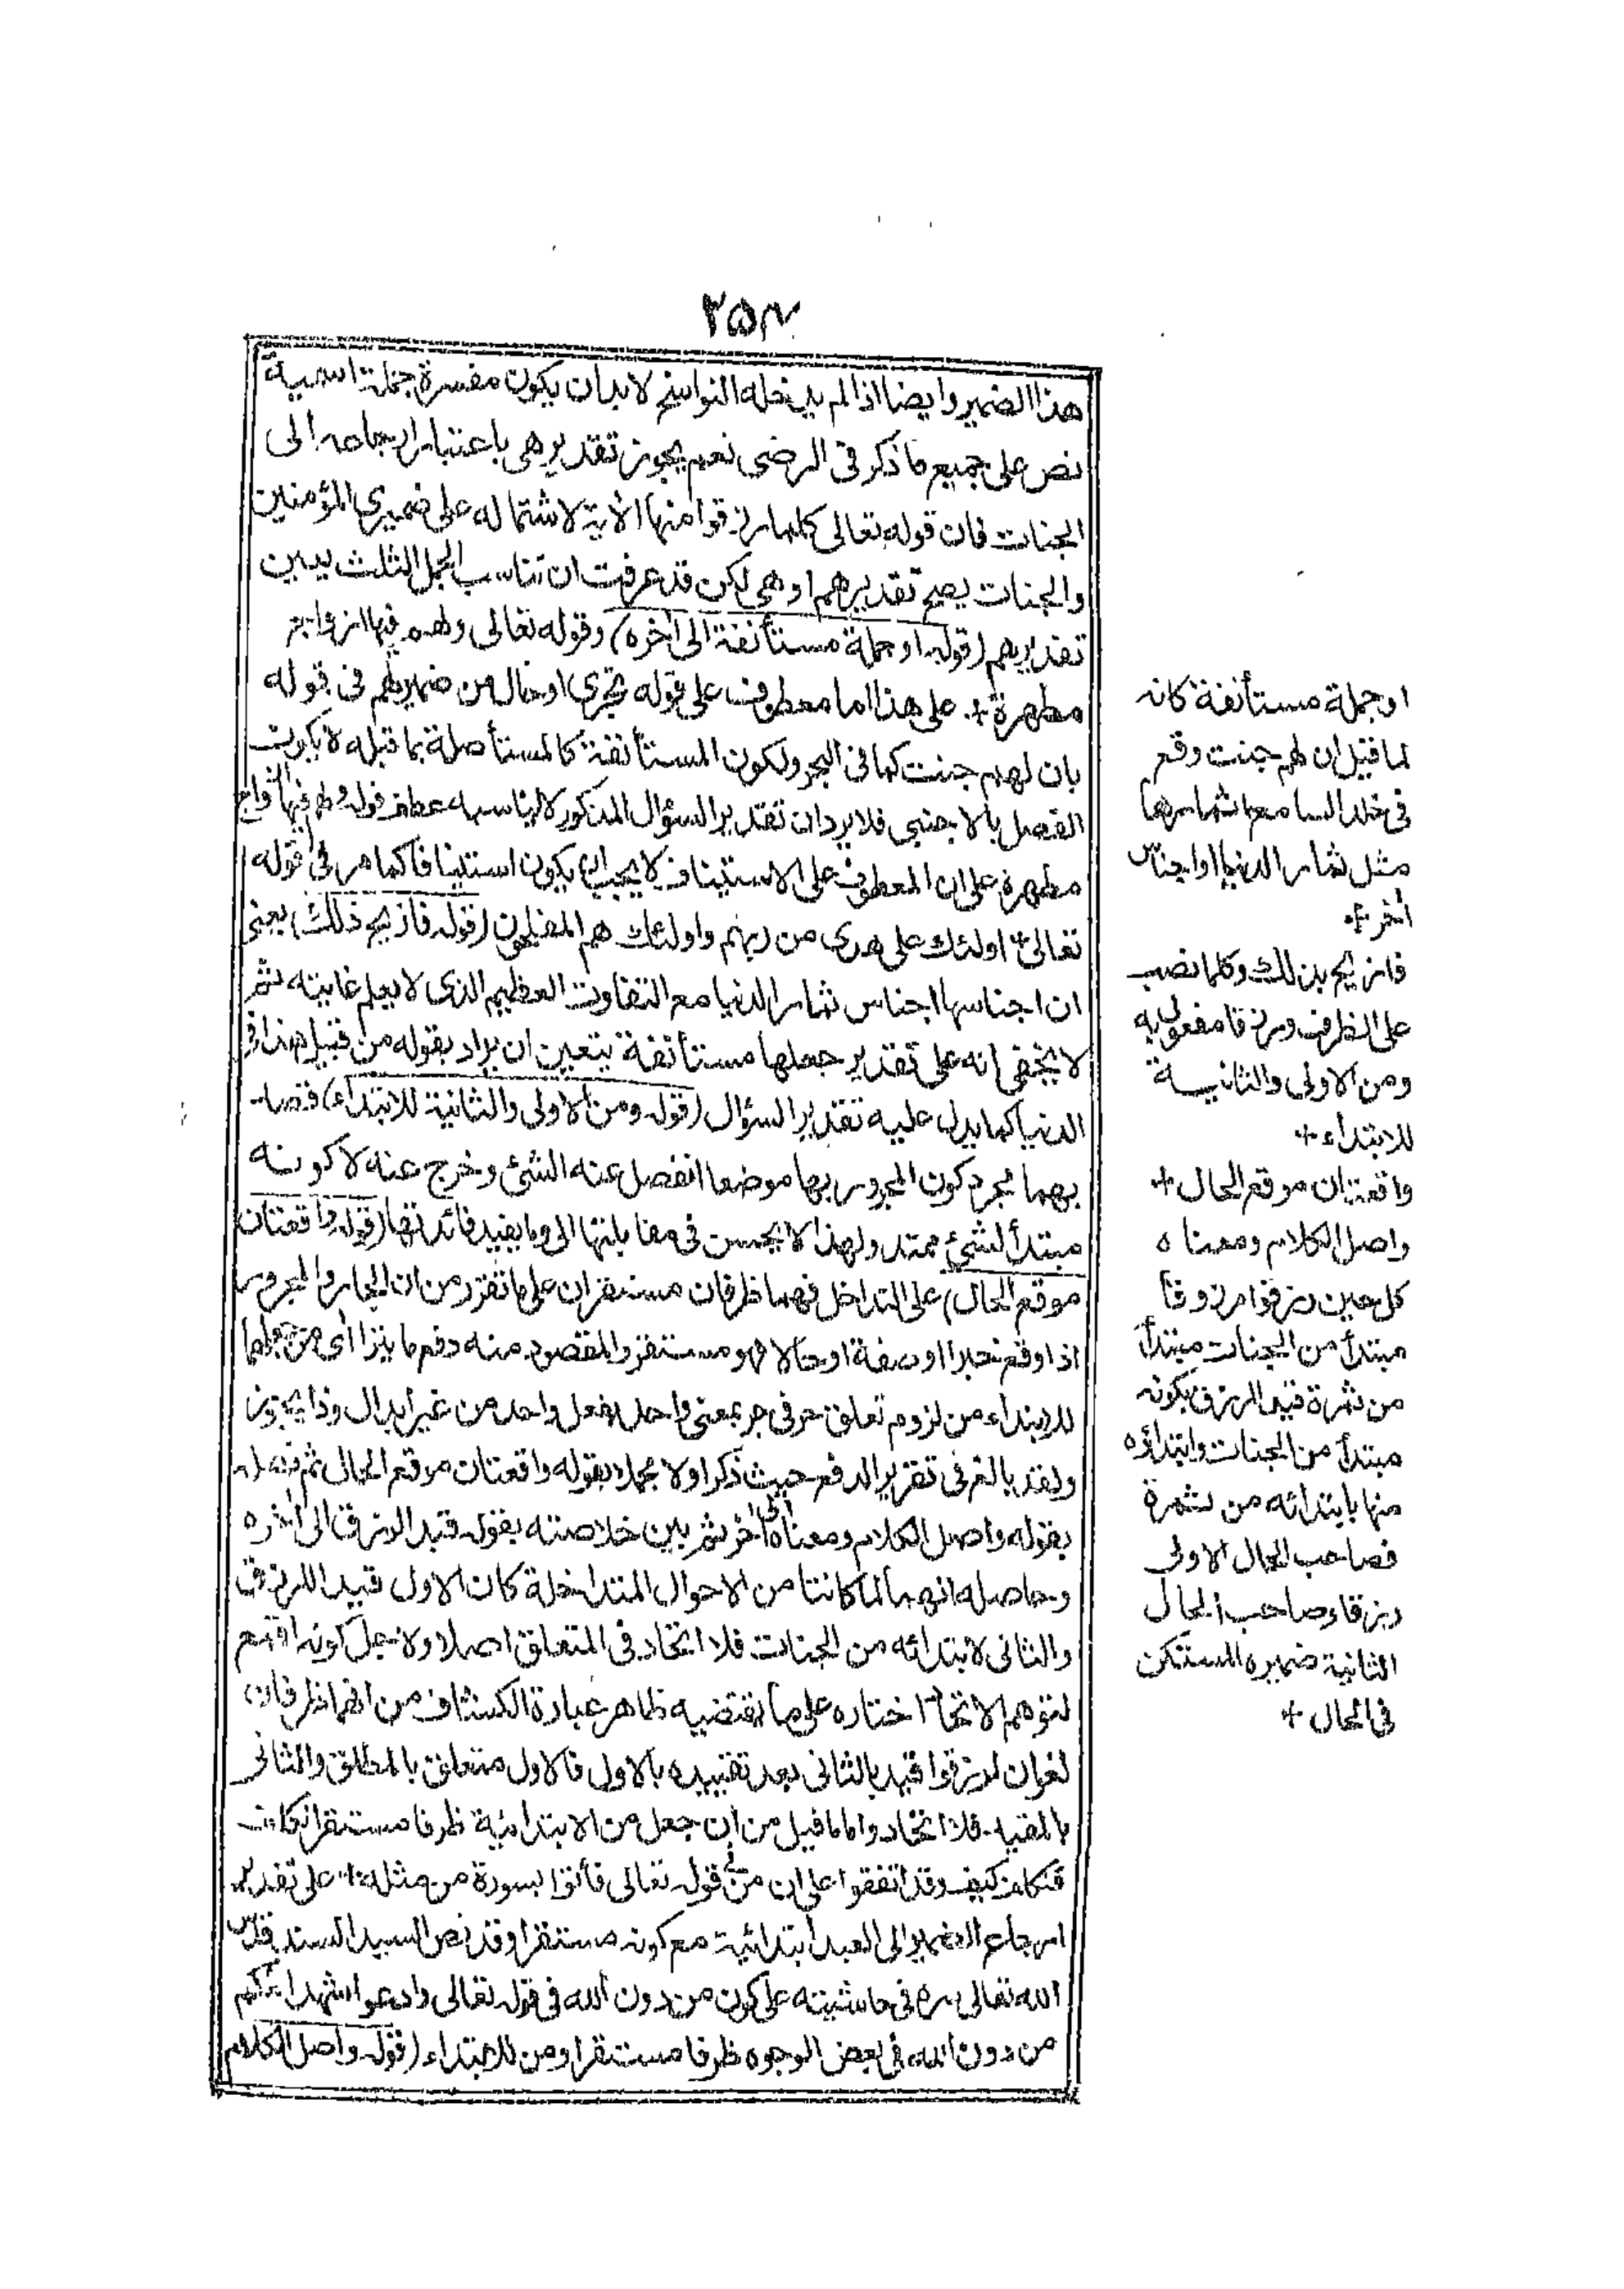 ٢٥٧
هذا الضمير وايضا اذا لم يدخله النواسخ لابد ان يكون مفسرة جملة اسمية
نص على جميع ما ذكر فى الرضى نعم يجوز تقدير هى باعتبار ارجاعه الى
الجنات فان قوله تعالى كلما رزقوا منها الاية لاشتماله على ضميرى المؤمنين
والجنات يصح تقدير هم او هى لكن قد عرفت ان تناسب الجمل الثلث يبين
تقديرهم (قوله او جملة مستأنفة الى آخره) وقوله تعالى ولهم فيها ازواج
مطهرة + على هذا اما معطوف على قوله تجرى او حال من ضمير لهم فى قوله
بان لهم جنت كما فى البحر ولكون المستأنفة كالمستأصلة بما قبله لا يكون
الفصل بالاجنبى فلا يرد ان تقدير السؤال المذكور لا يناسبه عطف قوله ولهم فيها ازواج
مطهرة على ان المعطوف على الاستيناف لا يجب ان يكون استينافا كما مر فى قوله
تعالى + اولئك على هدى من ربهم واولئك هم المفلحون (قوله فازيح ذلك) يعنى
ان اجناسها اجناس ثمار الدنيا مع التفاوت العظيم الذى لا يعلم غايته ثم
لا يخفى انه على تقدير جعلها مستأنفة يتعين ان يراد بقوله من قبل هذا فى
الدنيا كما يدل عليه تقدير السؤال (قوله ومن الاولى والثانية للابتداء) قصد
بهما مجرد كون المجرور بها موضعا انفصل عنه الشئ وخرج عنه لا كونه
مبتدأ لشئ ممتد ولهذا لا يحسن فى مقابلتها الى وما يفيد فائدتها (قوله واقعتان
موقع الحال) على التداخل فهما ظرفان مستقران على ما تقرر من ان الجار والمجرور
اذا وقع خبرا او صفة او حالا فهو مستقر والمقصود منه دفع ما يتراأى من جعلهما
للابتداء من لزوم تعلق حرفى جر بمعنى واحد بفعل واحد من غير ابدال وذا لا يجوز
ولقد بالغ فى تقرير الدفع حيث ذكر اولا مجملا بقوله واقعتان موقع الحال ثم
بقوله واصل الكلام ومعناه الى آخر ثم بين خلاصته بقوله قيد الرزق الى آخره
وحاصله انهما لما كانتا من الاحوال المتداخلة كان الاول قيدا للرزق
والثانى لابتدائه من الجنات فلا اتحاد فى المتعلق اصلا ولاجل كونه اقمع
لتوهم الاتحاد اختاره على ما يقتضيه ظاهر عبارة الكشاف من انهما ظرفان
لغوان لرزقوا قيد بالثانى بعد تقييده بالاول فالاول متعلق بالمطلق والثانى
بالمقيد فلا اتحاد واما ما قيل من ان جعل من الابتدائية ظرفا مستقرا
فتكلف كيف وقد اتفقوا على ان من فى قوله تعالى فأتوا بسورة من مثله + على تقدير
ارجاع الضمير الى العبد ابتدائية مع كونه مستقرا وقد نص السيد السند قدس
الله تعالى سره فى حاشيته على كون من دون الله فى قوله تعالى وادعوا شهداءكم
من دون الله فى بعض الوجوه ظرفا مستقرا ومن للابتداء (قوله واصل الكلام
او جملة مستأنفة كانه
لما قيل ان لهم جنت وقع
فى خلد السامع اثمارها
مثل ثمار الدنيا او اجناس
اخر +
فازيح بذلك وكلما نصب
على الظرف ورزقا مفعول به
ومن الاولى والثانية
للابتداء +
واقعتان موقع الحال +
واصل الكلام ومعناه
كل حين رزقوا مرزوقا
مبتدأ من الجنات مبتدأ
من ثمرة قيد الرزق بكونه
مبتدأ من الجنات وابتداؤه
منها بابتدائه من ثمرة
فصاحب الحال الاولى
رزقا وصاحب الحال
الثانية ضميره المستكن
فى الحال +